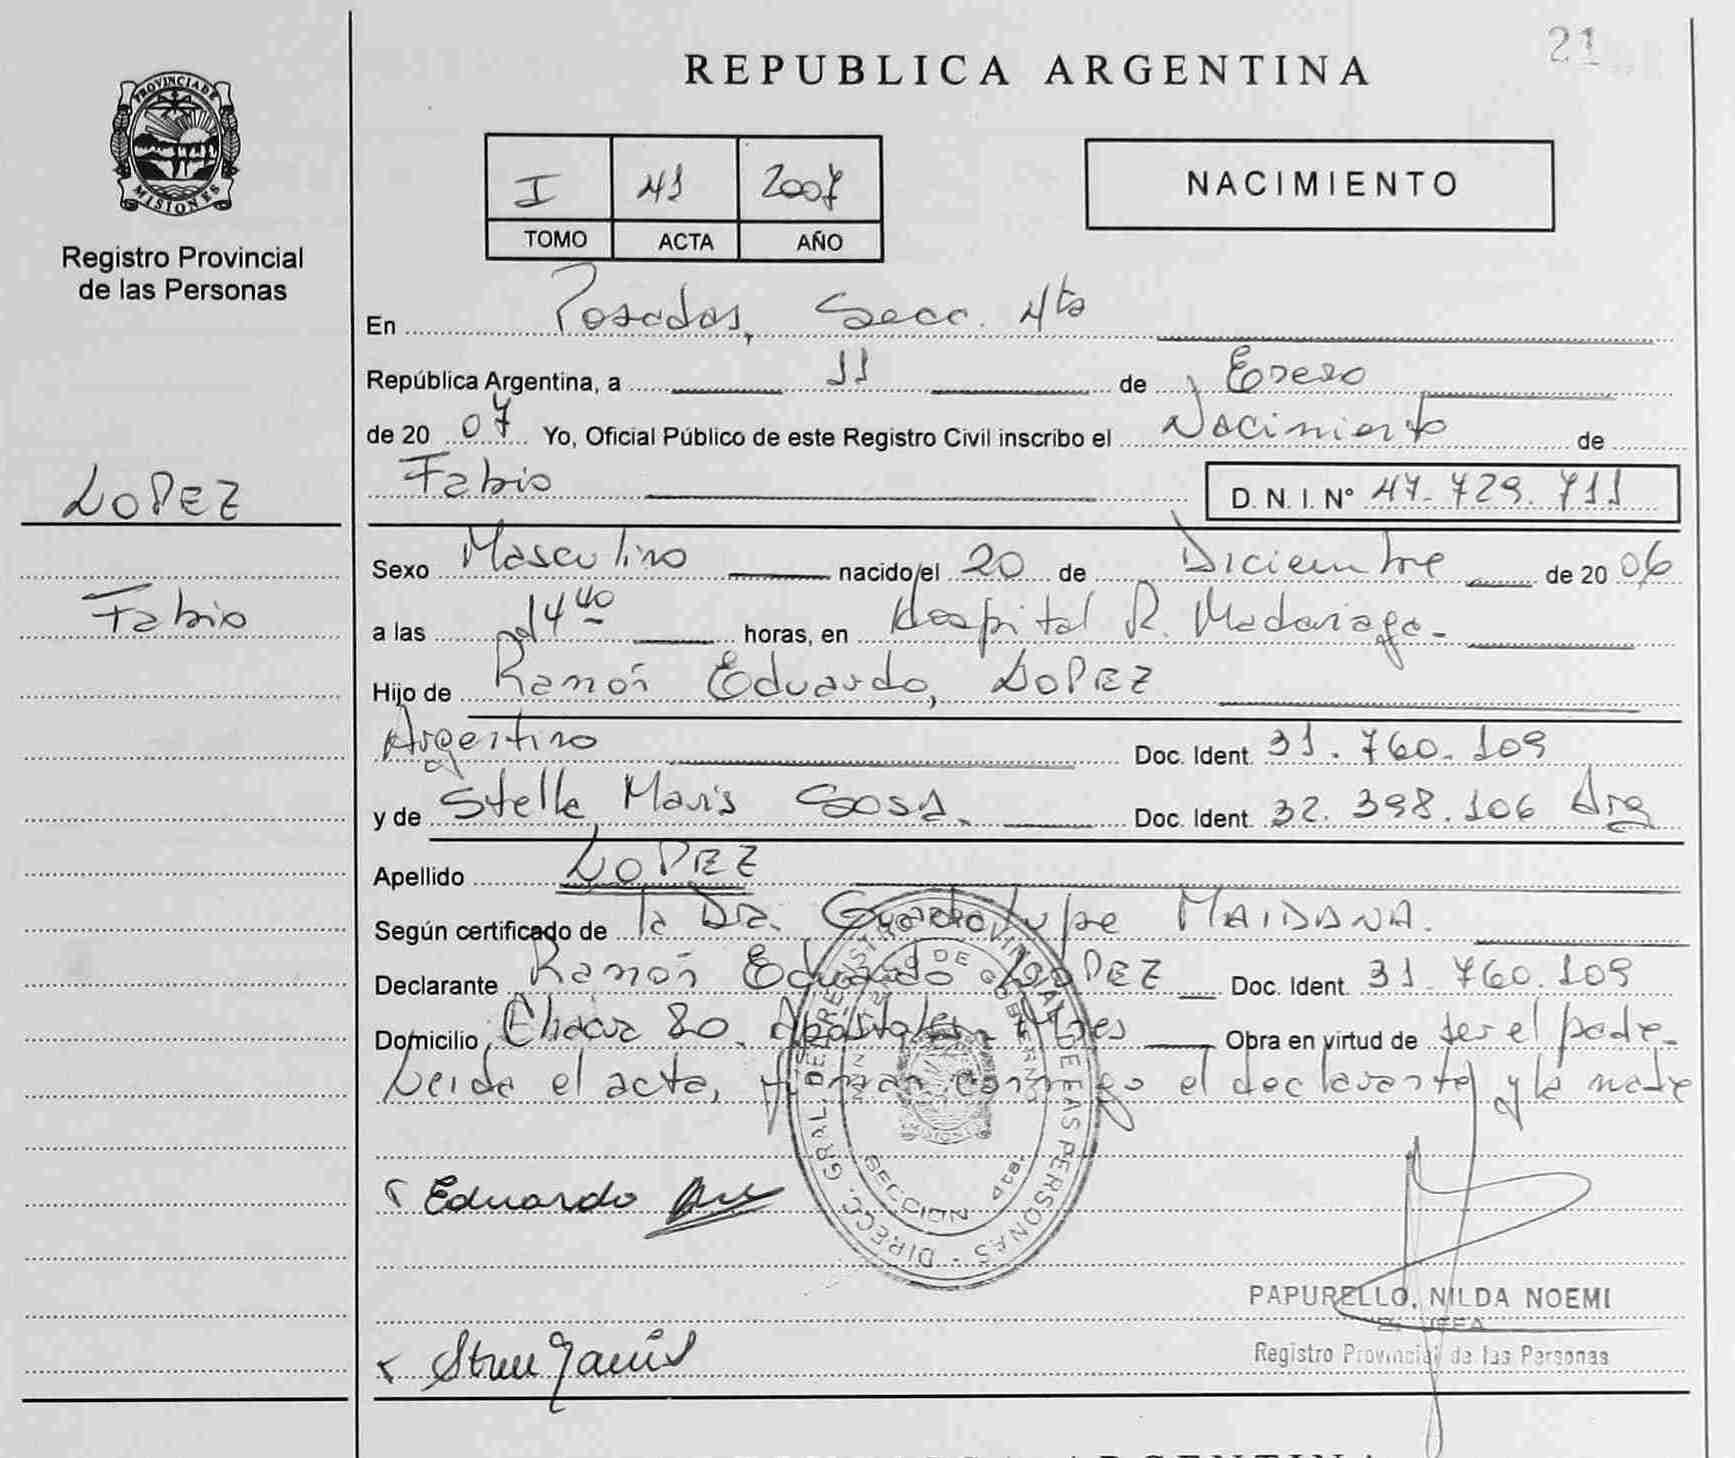 21
REPUBLICA ARGENTINA
PROVINCIA DE
MISIONES
Registro Provincial
de las Personas
I 41 2007
TOMO ACTA AÑO
NACIMIENTO
En Posadas, Secc. 4ta
República Argentina, a 11 de Enero
de 20 07 Yo, Oficial Público de este Registro Civil inscribo el Nacimiento de
LOPEZ
Fabio D. N. I. N° 47.729.711
Sexo Masculino nacido el 20 de Diciembre de 20 06
Fabio
a las 14 40 horas, en Hospital R. Madariaga.
Hijo de Ramón Eduardo, LOPEZ
Argentino Doc. Ident. 31.760.109
y de Stella Maris SOSA. Doc. Ident. 32.398.106 Arg
Apellido LOPEZ
Según certificado de la Dra. Guadalupe MAIDANA.
Declarante Ramón Eduardo LOPEZ Doc. Ident. 31.760.109
Domicilio Chacra 80. Apostoles. Mnes Obra en virtud de ser el padre.
Leida el acta, firman conmigo el declarante y la madre
DIRECC. GRAL. DEL REGISTRO PROVINCIAL DE LAS PERSONAS
MINISTERIO DE GOBIERNO
MISIONES
SECCION 4ta.
Eduardo
PAPURELLO, NILDA NOEMI
Registro Provincial de las Personas
ARGENTINA